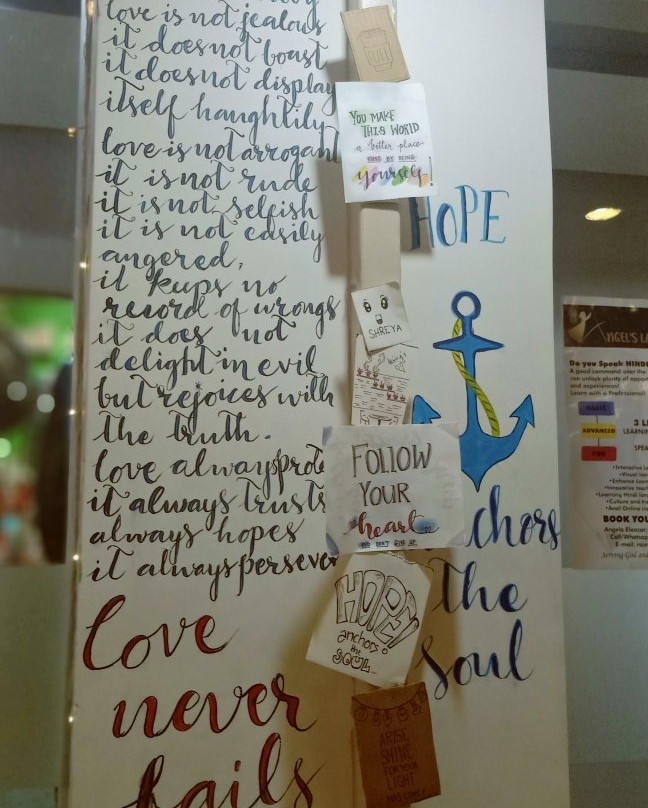 love is not jealous
it does not boast
it does not display
itself haughtily
love is not arrogant
it is not rude
it is not selfish
it is not easily
angered,
it keeps no
record of wrongs
it does not
delight in evil
but rejoices with
the truth.
love always prote
it always trusts
always hopes
it always persever
love
never
fails
YOU MAKE
THIS WORLD
a better place
JUST BY BEING
yourself!
SHREYA
FOLLOW
YOUR
heart
HOPE
anchors
the
SOUL
ARISE
SHINE
FOR YOUR
LIGHT
HAS COME
HOPE
chors
the
soul
NGEL'S LA
Do you Speak HINDI
A good command over the
can unlock plenty of opport
and experiences!
Learn with a Professional
BASIC
ADVANCED
PRO
3 L
LEARNIN
SPEA
•Interactive L
•Visual lea
•Enhance Learn
•Innovative
•Learning Hindi lan
•Culture and
BOOK YOU
Angela Eleazar
Call/Whatsap
E-mail:
Serving God an